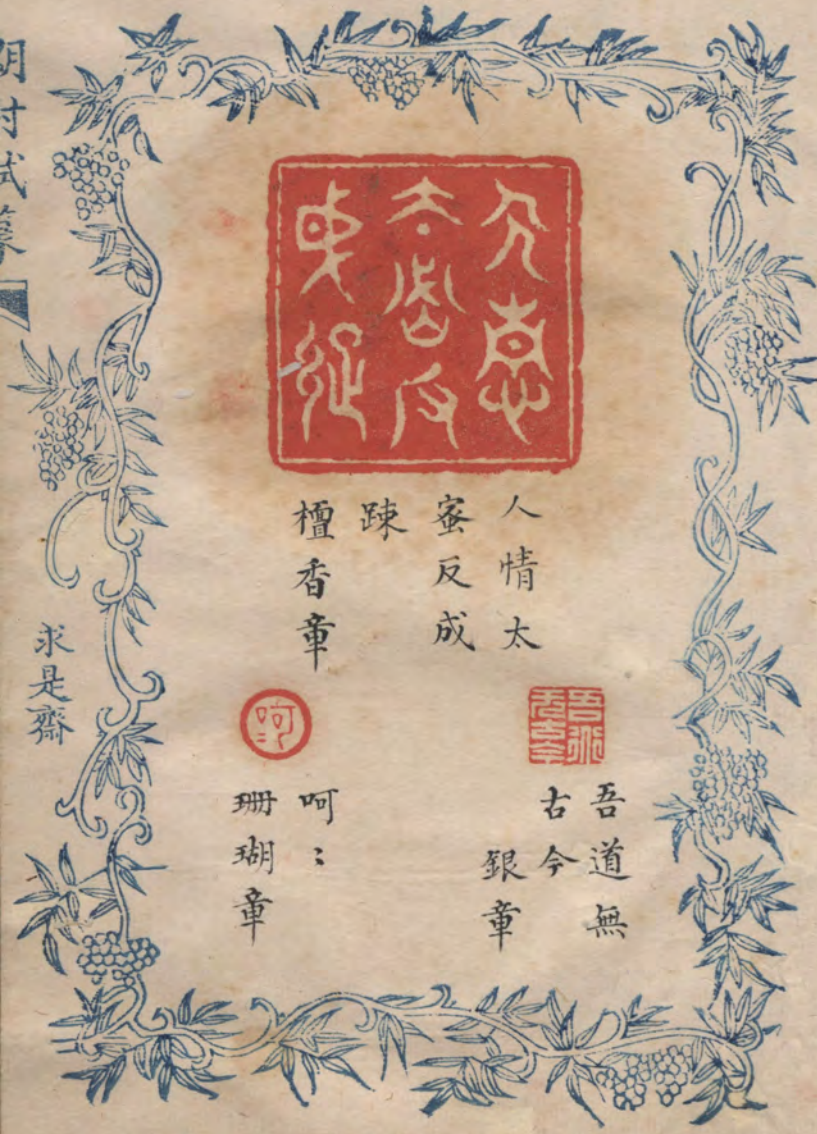 人情
太蜜反
成踈
人情太
蜜反成
踈
檀香章
吾道
无古今
吾道無
古今
銀章
呵〻
呵〻
珊瑚章
試篆
求是齋